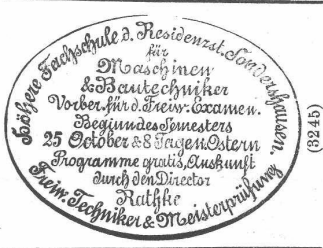 Höhere Fachschule d. Residenzst. Sondershausen.
für
Maschinen
& Bautechniker
Vorber. für d. Freiw. Examen.
Beginn des Semesters
25 October & 8 Tag. n. Ostern
Programme gratis, Auskunft
durch den Director
Rathke
Freiw. Techniker & Meisterprüfung
(3245)